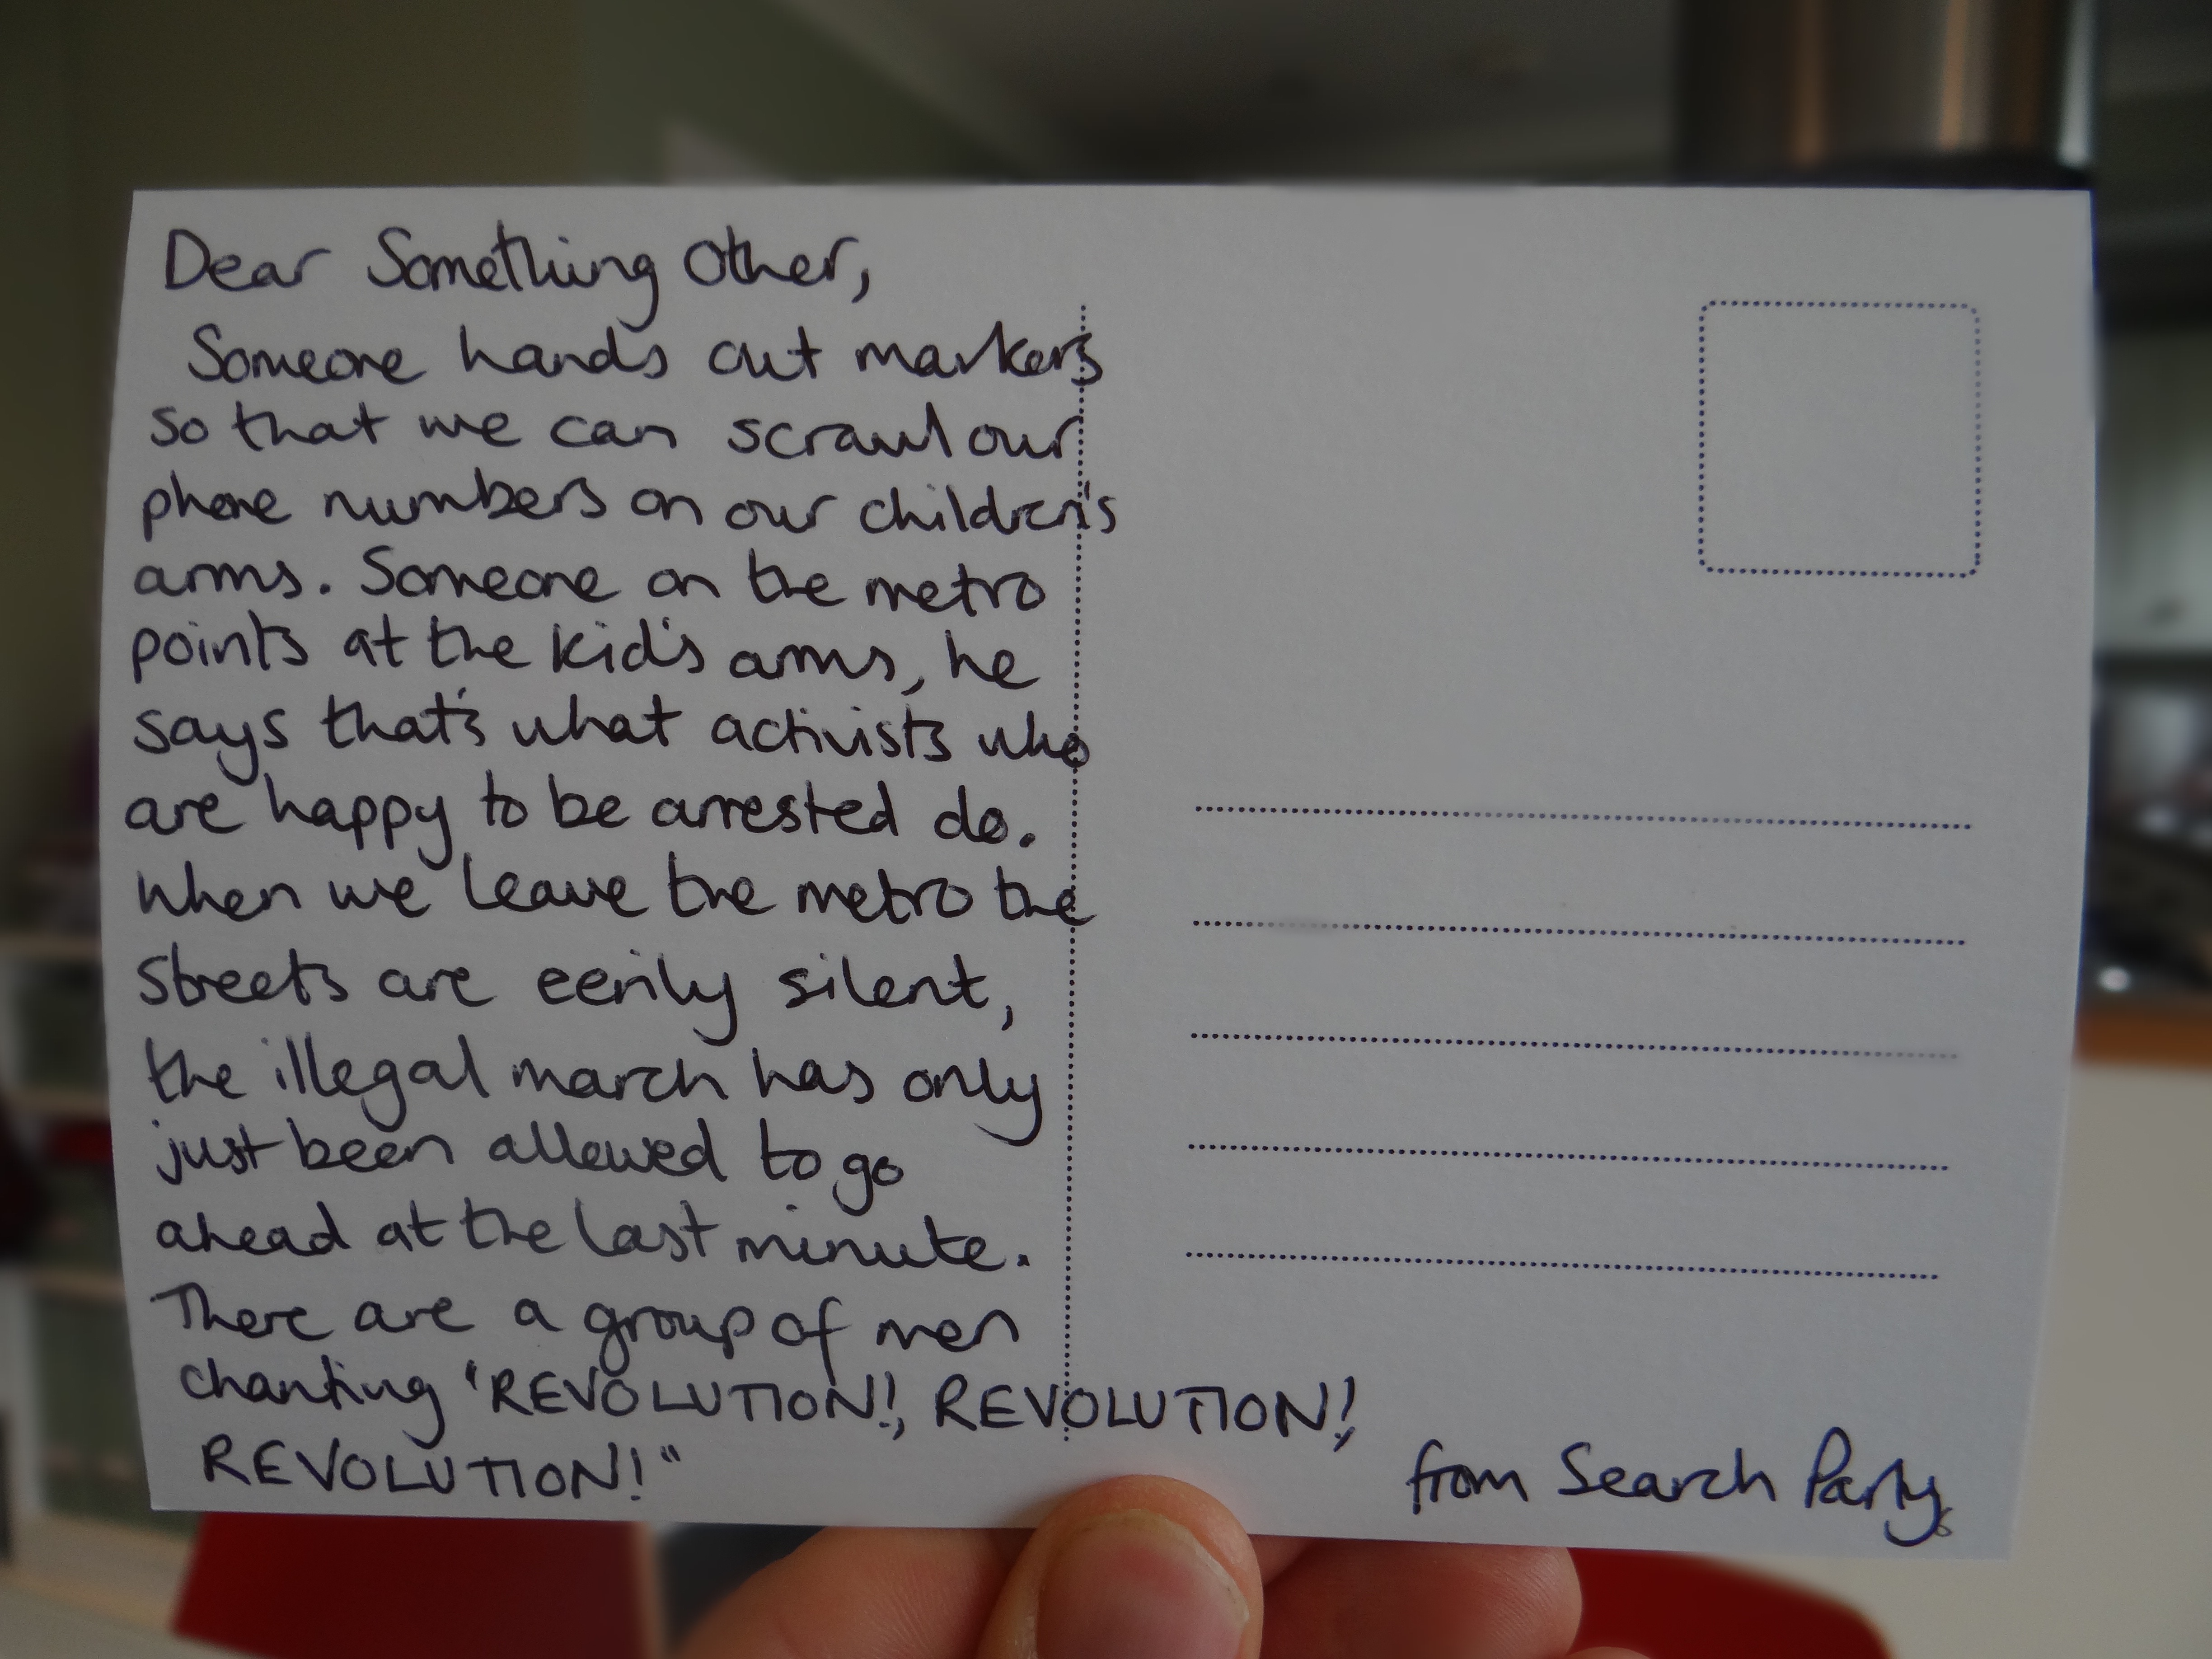 Dear Something Other,
Someone hands out markers
so that we can scrawl our
phone numbers on our children's
arms. Someone on the metro
points at the kid's arms, he
says that's what activists who
are happy to be arrested do.
When we leave the metro the
streets are eerily silent,
the illegal march has only
just been allowed to go
ahead at the last minute.
There are a group of men
chanting "REVOLUTION!, REVOLUTION!,
REVOLUTION!"
from Search Party.